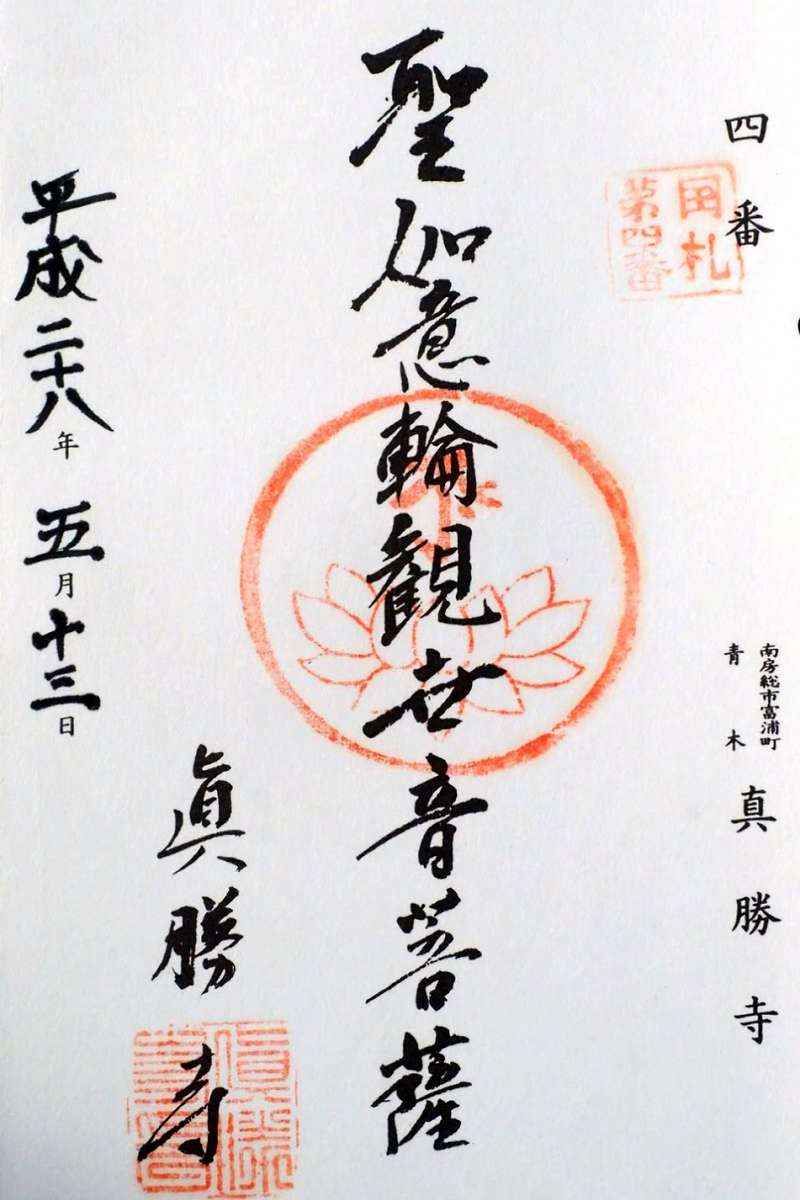 四番
国札
第四番
南房総市富浦町
青木
真勝寺
聖如意輪観世音菩薩
平成二十八年五月十三日
眞勝寺